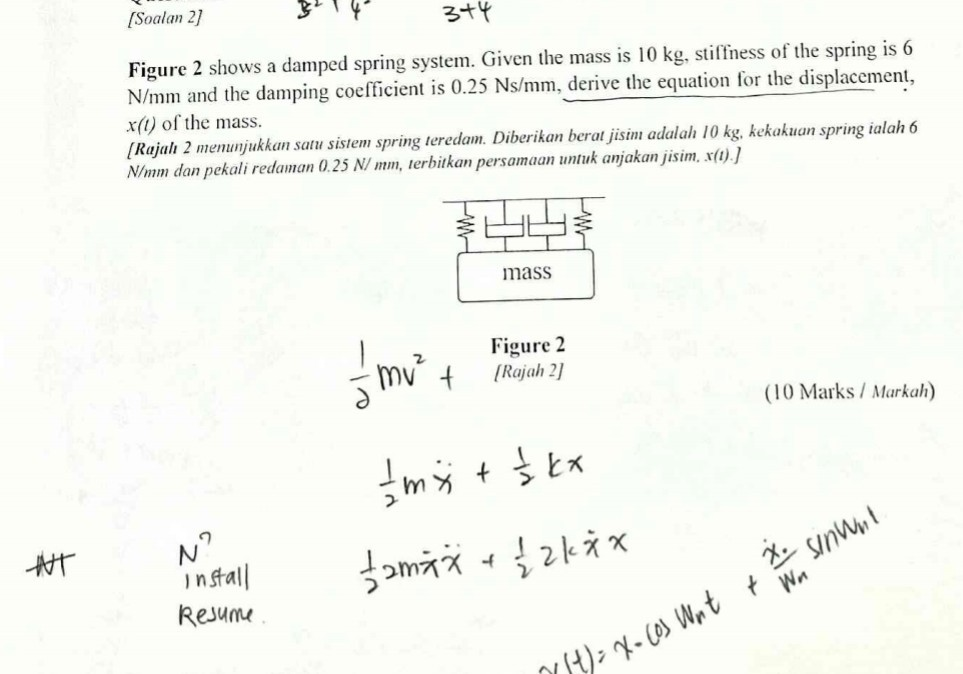 [Soalan 2]
3+4
Figure 2 shows a damped spring system. Given the mass is 10 kg, stiffness of the spring is 6
N/mm and the damping coefficient is 0.25 Ns/mm, derive the equation for the displacement,
x(t) of the mass.
[Rajah 2 menunjukkan satu sistem spring teredam. Diberikan berat jisim adalah 10 kg, kekakuan spring ialah 6
N/mm dan pekali redaman 0.25 N/ mm, terbitkan persamaan untuk anjakan jisim, x(t).]
mass
Figure 2
[Rajah 2]
½mv² +
(10 Marks / Markah)
½mẍ + ½kx
½2mẋẍ + ½2kẋx
N?
Install
Resume.
x(t) = x₀ cos Wnt + ẋ₀/Wn sinWnt